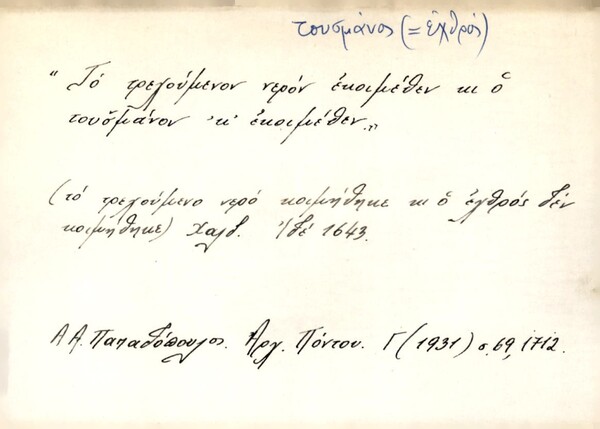 τουσμάνος (= ἐχθρός)
"Τό τρεχούμενον νερόν ἐκοιμέθεν κι ὁ
τουσμάνον 'κ' ἐκοιμέθεν."
(τό τρεχούμενο νερό κοιμήθηκε κι ὁ ἐχθρός δέν
κοιμήθηκε) Χαλδ. 1643.
Α.Α. Παπαδόπουλος. Αρχ. Πόντου. Γ (1931) σ. 69, 1712.